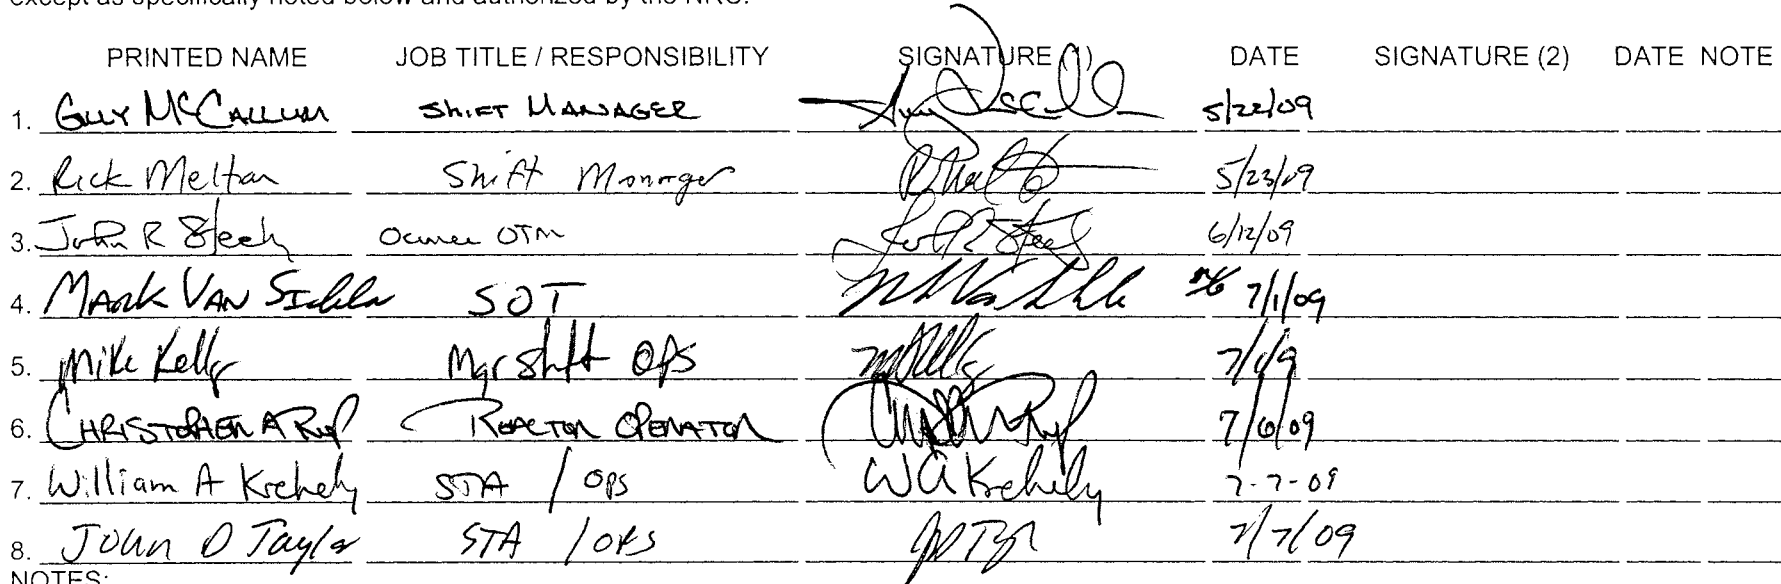 except as specifically noted below and authorized by the NRC.
PRINTED NAME JOB TITLE / RESPONSIBILITY SIGNATURE (1) DATE SIGNATURE (2) DATE NOTE
1. GUY McCALLUM SHIFT MANAGER 5/22/09
2. Rick Melton Shift Manager 5/23/09
3. John R Steely OTM 6/12/09
4. MARK VAN SICKLE SOT 7/1/09
5. Mike Kelly Mgr Shift OPS
6. CHRISTOPHER A REACTOR OPERATOR 7/6/09
7. William A Krehely STA / OPS WA Krehely 7-7-09
8. John D Taylor STA / OPS 7/7/09
NOTES: